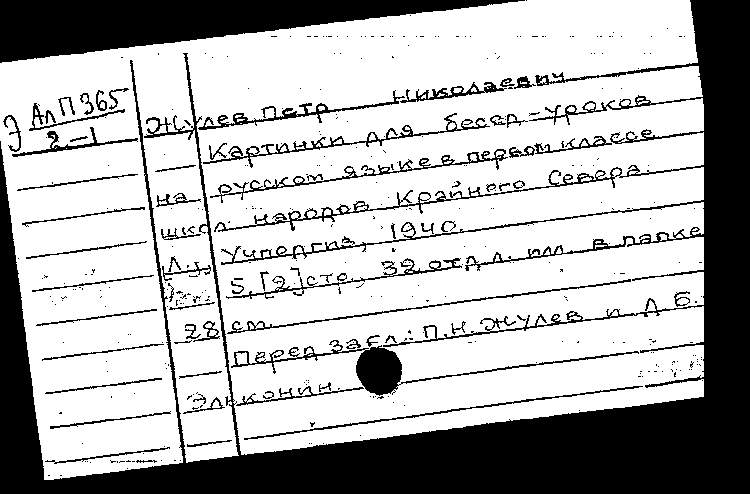 Э АлП365
2-1
Жулев, Петр Николаевич
Картинки для бесед-уроков
на русском языке в первом классе
школ народов Крайнего Севера.
Л., Учпедгиз, 1940.
5, [2] стр., 32 отд. л. илл. в папке
28 см.
Перед загл.: П.Н. Жулев и Д Б.
Эльконин.